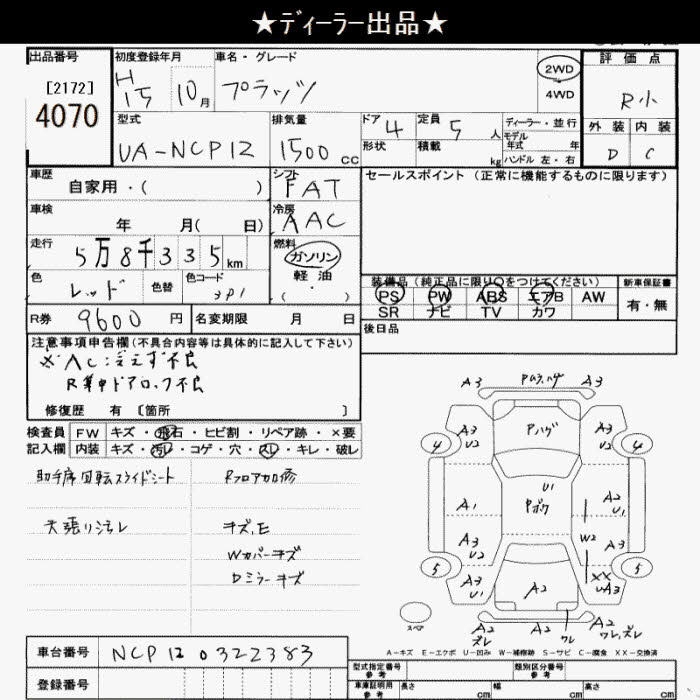 ★ディーラー出品★
出品番号
[2172]
4070
初度登録年月
H
15 10月
車名・グレード
プラッツ
2WD
4WD
評価点
R小
外装 内装
D C
型式
UA-NCP12
排気量
1500 CC
ドア 4
形状
定員 5 人
積載 kg
ディーラー・並行
モデル
年式 年
ハンドル 左・右
車歴
自家用・( )
シフト
FAT
セールスポイント（正常に機能するものに限ります）
車検
年 月( 日)
冷房
AAC
走行
5万8千335km
燃料
ガソリン
軽油・
( )
色
レッド
色替
色コード
3P1
装備品（純正品に限り○をつけてください）
PS PW ABS エアB AW
SR ナビ TV カワ
新車保証書
有・無
R券 9600 円
名変期限 月 日
後日品
注意事項申告欄(不具合内容等は具体的に記入して下さい)
※AC:冷えず不良
R集中ドアロック不良
修復歴 有 [箇所 ]
検査員
記入欄
FW キズ・飛石・ヒビ割・リペア跡・×要
内装 キズ・汚レ・コゲ・穴・スレ・キレ・破レ
助手席回転スライドシート
天張り汚レ
Rフロア加修
キズ,E
Wカバーキズ
Dミラーキズ
A3 A3
Pハゲ
4 A3 U2 A3 U2 4
U1
Pボワ
A1 A2 U1
A3 U2 W2 A3
5 A3 U1 A2 XX UA3 5
スペア
A2 ズレ A2 ワレ ワレ,ズレ
A－キズ E－エクボ U－凹み W－補修跡 S－サビ C－腐食 XX－交換済
車台番号 NCP12 0322383
登録番号
型式指定番号
類別区分番号
車庫証明用
参考
長さ cm 幅 cm 高さ cm